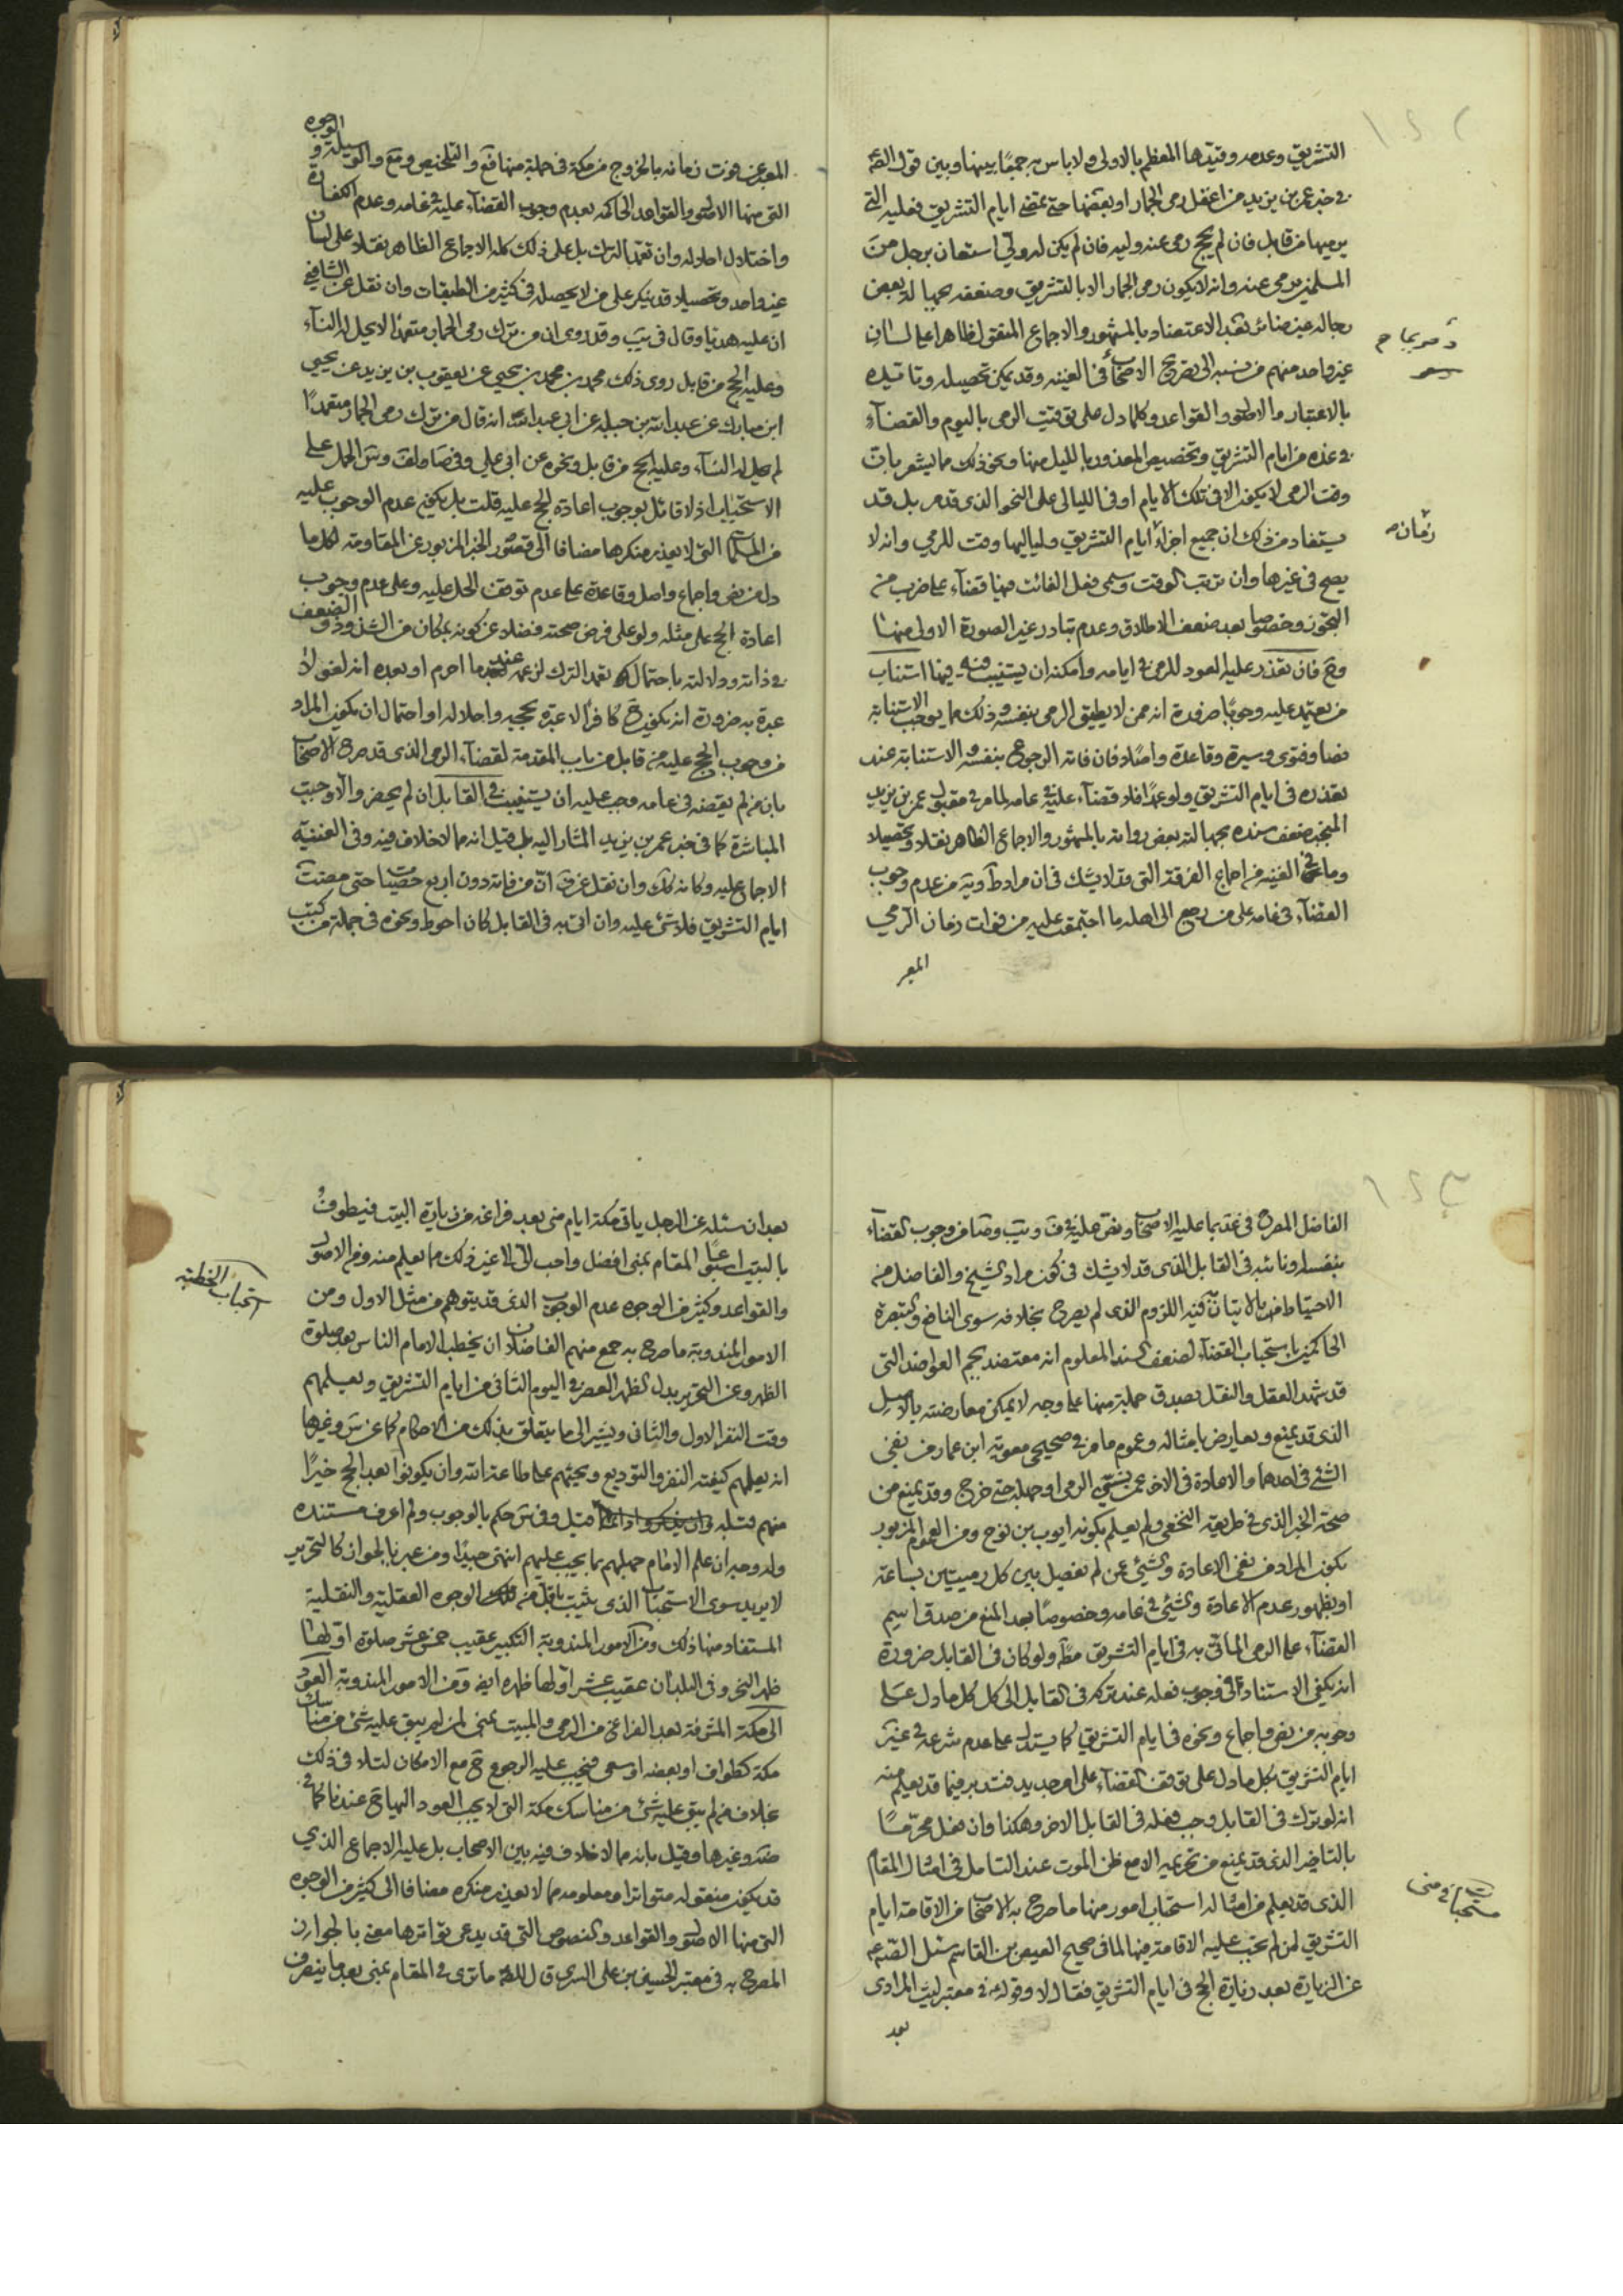 التشريق وعدمه وقيدها المعظم بالاولى ولا باس به جمعًا بينها وبين قول الصّ
في خبر عمر بن يزيد من اغفل رمى الجمار او بعضها حتى تمضى ايام التشريق فعليه
يرميها من قابل فان لم يحج رمى عنه وليه فان لم يكن له ولى استعان برجل من
المسلمين يرمى عنه وانه لا يكون رمى الجمار الا بالتشريق وضعفه بجهالة بعض
رجاله غير ضائر بعد الاعتضاد بالمشهور والاجماع المنقول ظاهرا على لسان
غير واحد منهم من نسبه الى تصريح الاصحاب في الغنيه وقد يمكن تحصيله وتاييده
بالاعتبار والاصول والقواعد وكلما دل على توقيت الرمى باليوم والقضاء
في غده من ايام التشريق وتخصيص المعذور بالليل منها ونحو ذلك مما يشعر بان
وقت الرمى لا يكون الا في تلك الايام او في الليالى على النحو الذى قدمر بل قد
يستفاد من ذلك ان جميع اجزاء ايام التشريق ولياليها وقت للرمي وانه لا
يصح في غيرها وان ترتب الوقت وسمى فعل الفائت فيها قضاء على ضرب من
التجوز وخصوصا بعد ضعف الاطلاق وعدم تبادر غير الصورة الاولى منها
وح فان تعذر عليه العود للرمى في ايامه وامكنه ان يستنيب فيه فيها استناب
من يعتمد عليه وجوبًا ضرورة انه ممن لا يطيق الرمى بنفسه وذلك مما يوجب الاستنابة
نصا وفتوى وسيرة وقاعدة واصلا فان فاته الرجوع بنفسه والاستنابة عند
تعذره في ايام التشريق ولو عمدًا فلا قضاء عليه في عامه لما مر في مقبول عمر بن يزيد
المنجبر ضعف سنده بجهالة بعض رواته بالمشهور والاجماع الظاهر نقلا وتحصيلا
وما في الغنيه من اجماع الفرقة التى قد لا يشك في ان مراد آويه من عدم وجوب
القضاء في عامه على من رجع الى اهله ما اجتمعت عليه من فوات زمان الرمي
المعبر
زمان
الوجوه
المعبر عن فوت زمانه بالخروج من مكة في جملة منها فع والتلخيص ومع والوسيلة و
التى منها الاصول والقواعد الحاكمه بعدم وجوب القضاء عليه في عامه وعدم الكفارة
واختلال احلاله وان تعمد الترك بل على ذلك كله الاجماع الظاهر نقلا على لسان
غير واحد وتحصيلا قد ينكر على من لا يحصله في كثير من الطبقات وان نقل عن الشافعي
ان عليه هديا وقال في يب وقد روى ان من ترك رمى الجمار متعمدا لا يحل له النساء
وعليه الحج من قابل روى ذلك محمد بن محمد بن يحيى عن يعقوب بن يزيد عن يحيى
ابن مبارك عن عبد الله بن جبلة عن ابى عبد الله انه قال من ترك رمى الجمار متعمدًا
لم يحل له النساء وعليه الحج من قابل ونحوه عن ابى علي وفي صا ولف وس الحمل على
الاستحباب اذ لا قائل بوجوب اعادة الحج عليه قلت بل يكفى عدم الوجوب عليه
من المسلمات التى لا يعذر منكرها مضافا الى قصور الخبر المزبور عن المقاومة لكل ما
دل من نص واجماع واصل وقاعدة على عدم توقف الحل عليه وعلى عدم وجوب
اعادة الحج على مثله ولو على فرض صحته فضلا عن كونه بمكان من الشذوذ والضعف
في ذاته ودلالته باحتمال تعمد الترك لزعمه عند ما احرم او بعده انه لغو لا
عبرة به ضرورة انه يكون ح كافرا لا عبرة بحجه واحلاله او احتمال ان يكون المراد
من وجوب الحج عليه من قابل من باب المقدمة لقضاء الرمى الذى قد صرح الاصحاب
بان من لم يقضه في عامه وجب عليه ان يستنيب في القابل ان لم يحضر والا وجبت
المباشرة كما في خبر عمر بن يزيد المشار اليه بل قيل انه مما لا خلاف فيه وفي الغنية
الاجماع عليه وكانه كك وان نقل عن ف ان من فاته دون اربع حصيات حتى مضت
ايام التشريق فلا شئ عليه وان اتى به في القابل كان احوط ونحوه في جملة من كتب
الفاضل المصرح في عدّ بما عليه الاصحاب ونص عليه في ف ويب وصا من وجوب القضاء
بنفسه او نائبه في القابل الذى قد لا يشك في كون مراد الشيخ والفاضل من
الاحتياط منه بالاتيان فيه اللزوم الذى لم يصرح بخلافه سوى النافع والتبصرة
الحاكمين باستحباب القضاء لضعف السند المعلوم انه معتضد بجم العواضد التى
قد شهد العقل والنقل بصدق جملة منها على وجه لا يمكن معارضته بالاصل
الذى قد يمنع ويعارض بامثاله وعموم ما مر في صحيحى معويه ابن عمار من نفى
الشئ في احدهما والاعادة في الاخر عمن نسى الرمى او جهله حتى خرج وقد يمنع من
صحة الخبر الذى في طريقه النخعى ولم يعلم بكونه ايوب بن نوح ومن العموم المزبور
بكون المراد من نفى الاعادة والشئ عمن لم يفصل بين كل رميتين بساعة
او بظهور عدم الاعادة والشئ في عامه وخصوصًا بعد المنع من صدق اسم
القضاء على الرمى الماتى به في ايام التشريق مطّ ولو كان في القابل ضرورة
انه يكفى الاستناد في وجوب فعله عند تركه في القابل الى كل كل ما دل على
وجوبه من نص واجماع ونحوه في ايام التشريق كما يستدل على عدم شرعه في غير
ايام التشريق بكل ما دل على توقف القضاء على امر جديد فتدبر فيما قد يعلم منه
انه لو ترك في القابل وجب فعله في القابل الاخر وهكذا وان فعل محرّمًا
بالتاخير الذى قد يمنع من تحريمه الا مع ظن الموت عند التامل في امثال المقام
الذى قد يعلم من امثاله استحباب امور منها ما صرح به الاصحاب من الاقامة ايام
التشريق لمن لم تجب عليه الاقامة فيها لما في صحيح العيص بن القاسم سئل الصّ
عن الزيارة بعد زيارة الحج في ايام التشريق فقال لا وقوله في معتبر ليث المرادى
بعد
مستحبات في منى
بعد ان سئله عن الرجل ياتى مكة ايام منى بعد فراغه من زيارة البيت فيطوف
بالبيت اسبوعًا المقام بمنى افضل واحب الى الى غير ذلك مما يعلم منه ومن الاصول
والقواعد وكثير من الوجوه عدم الوجوب الذى قد يتوهم من مثل الاول ومن
الامور المندوبة ما صرح به جمع منهم الفاضلان ان يخطب الامام الناس بعد صلوة
الظهر وعن التحرير بدل الظهر العصر في اليوم الثانى من ايام التشريق ويعلمهم
وقت النفر الاول والثانى ويشير الى ما يتعلق بذلك من الاحكام كما عن س وغيرها
انه يعلمهم كيفية النفر والتوديع ويحثهم على طاعة الله وان يكونوا بعد الحج خيرًا
منهم قبله قيل وفي س حكم بالوجوب ولم اعرف مستنده
وله وجه ان علم الامام جهلهم بما يجب عليهم انتهى جيدًا ومن عبر بالجواز كالتحرير
لا يريد سوى الاستحباب الذى يثبت باقل من تلك الوجوه العقلية والنقلية
المستفاد منها ذلك ومن الامور المندوبة التكبير عقيب خمس عشر صلوة اولها
ظهر النحر وفي البلدان عقيب عشر اولها ظهره ايضا ومن الامور المندوبة العود
الى مكة المشرفة بعد الفراغ من الرمى والمبيت بمنى لمن لم يبق عليه شئ من مناسك
مكة كطواف او بعضه او سعى فيجب عليه الرجوع ح مع الامكان لتلافى ذلك
بخلاف من لم يبق عليه شئ من مناسك مكة التى لا يجب العود اليها ح عندنا كما في
صرّ وغيرها وقيل بانه مما لا خلاف فيه بين الاصحاب بل عليه الاجماع الذي
قد يكون منقوله متواترا ومعلومه مما لا يعذر منكره مضافا الى كثير من الوجوه
التى منها الاصول والقواعد والنصوص التى قد يدعى تواترها معنى بالجواز
المصرح به في معتبر الحسين بن على السرى قال للصّ ما ترى في المقام بمنى بعد ما ينفرف
استحباب الخطبه